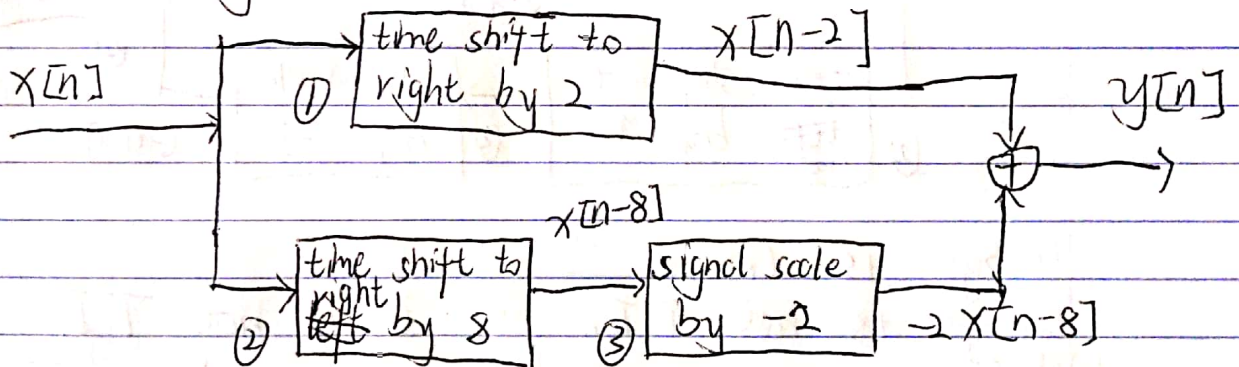 time shift to
right by 2
①
x[n]
x[n-2]
y[n]
+
x[n-8]
time shift to
right
left by 8
②
signal scale
by -2
③
-2x[n-8]